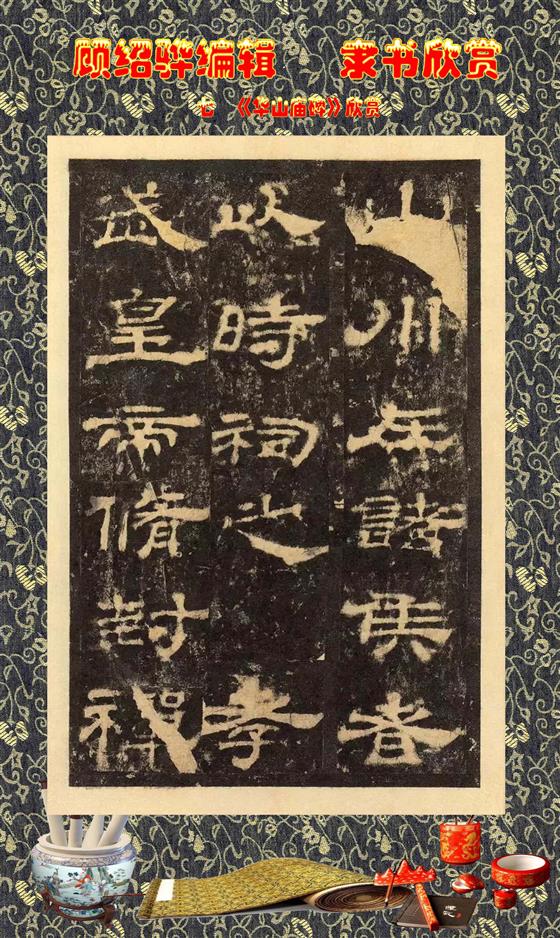 顾绍骅编辑 隶书欣赏
《华山庙碑》欣赏
山川在諸侯者
以時祠之 孝
武皇帝脩封禪